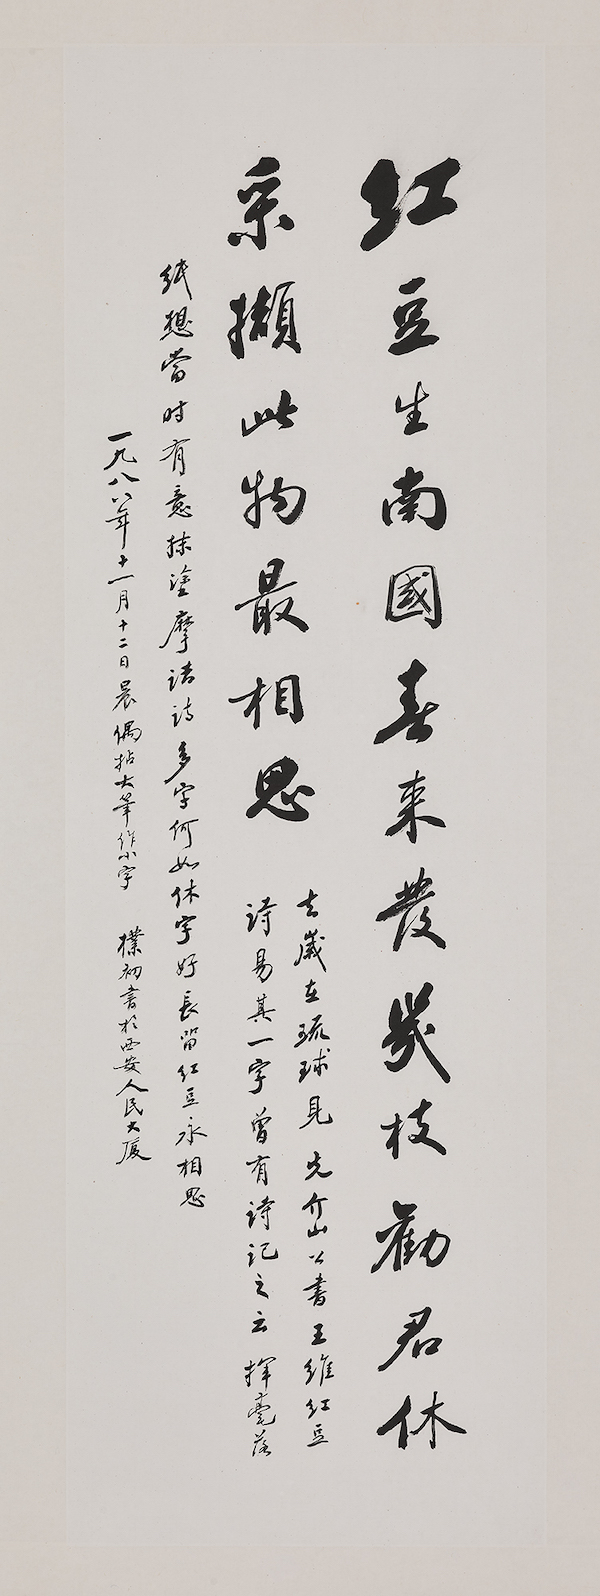 紅豆生南國春来發幾枝勸君休
采擷此物最相思
去嵗在琉球見先介山公書王維紅豆
詩易其一字曾有詩記之云揮毫落
紙想當时有意抹塗摩詰詩多字何如休字好長留紅豆永相思
一九八八年十一月十二日晨偶拈大筆作小字 樸初書於西安人民大厦